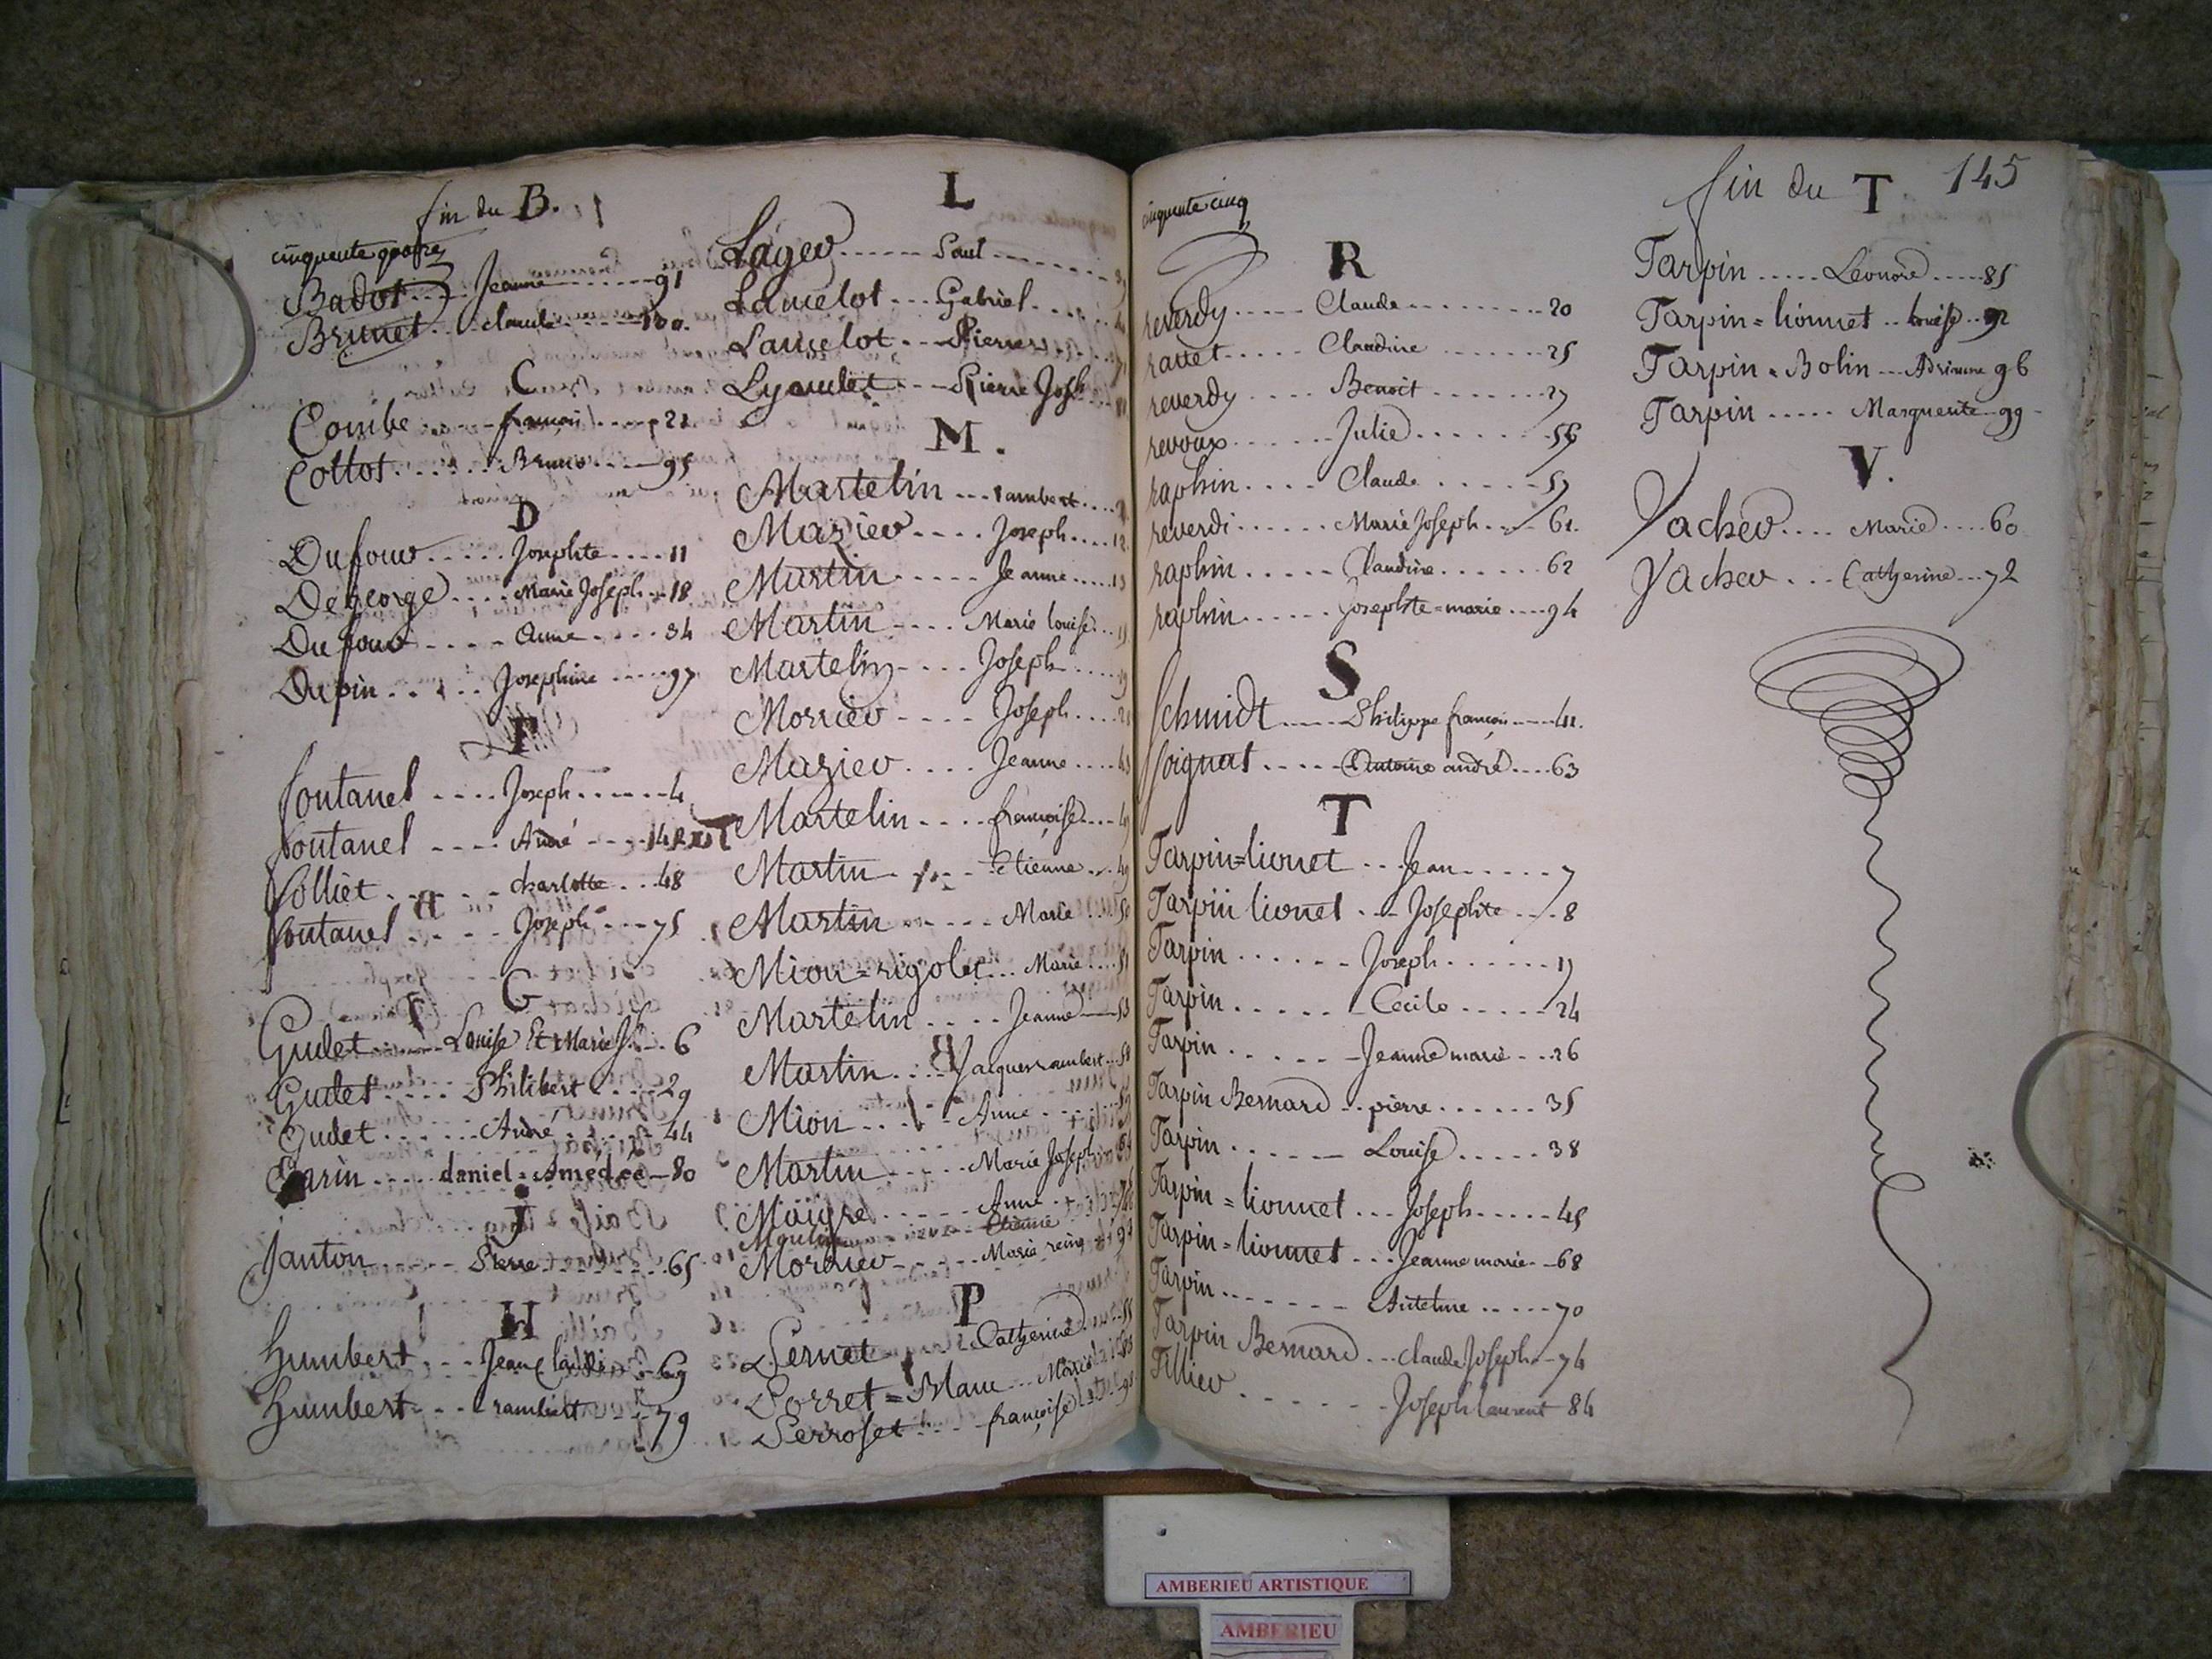 fin du B.
cinquente quatre
Badot Jeanne 91
Brunet claude 100.
C
Combe françois 22
Collot Bruno 95
D
Dufour Josephte 11
Degeorge Marie Joseph 18
Dufour Anne 34
Dupin Josephine 97
F
fontanel Joseph 4
fontanel André 14
folliet charlotte 48
fontanel Joseph 75
G
Gudet Louise Et Marie Jh 6
Gudet Philibert 29
Gudet André 44
Garin daniel=Amédée 80
J
Janton Pierre 65
H
humbert Jean Claude 69
humbert rambert 79
L
Lager Paul
Lancelot Gabriel
Lancelot Pierre
Lyaudet Pierre Josh
M.
Martelin rambert
Mazier Joseph 12
Martin Jeanne 13
Martin Marie louise 15
Martelin Joseph 19
Morrier Joseph 21
Mazier Jeanne 43
Martelin françoise
Martin Etienne 49
Martin Marie 50
Mion=rigolet Marie 51
Martelin Jeanne 53
Martin Jacques rambert 58
Mion Anne
Martin Marie Joseph
Maigre Anne
Moulin Etienne
Morrier Marie reine
P
Pernet Catherine 55
Porret=Blanc Marie
Perroset françoise
cinquente cinq
R
reverdy Claude 20
rattet Claudine 25
reverdy Benoit 27
revoux Julie 56
raphin Claude 57
reverdi Marie Joseph 61.
raphin Claudine 62
raphin Josephte=marie 94
S
Schmidt Philippe françois 41.
Soignat Antoine andré 63
T
Tarpin=lionet Jean 7
Tarpin lionet Josephte 8
Tarpin Joseph 17
Tarpin Cecile 24
Tarpin Jeanne marie 26
Tarpin Bernard pierre 35
Tarpin Louise 38
Tarpin=lionnet Joseph 45
Tarpin=lionnet Jeanne marie 68
Tarpin Antelme 70
Tarpin Bernard claude Joseph 74
Tillier Joseph laurent 84
fin du T. 145
Tarpin Leonore 85
Tarpin=lionnet Louise 92
Tarpin=Bolin Adrienne 96
Tarpin Marguerite 99
V.
Vacher Marie 60
Vacher Catherine 72
AMBERIEU ARTISTIQUE
AMBERIEU